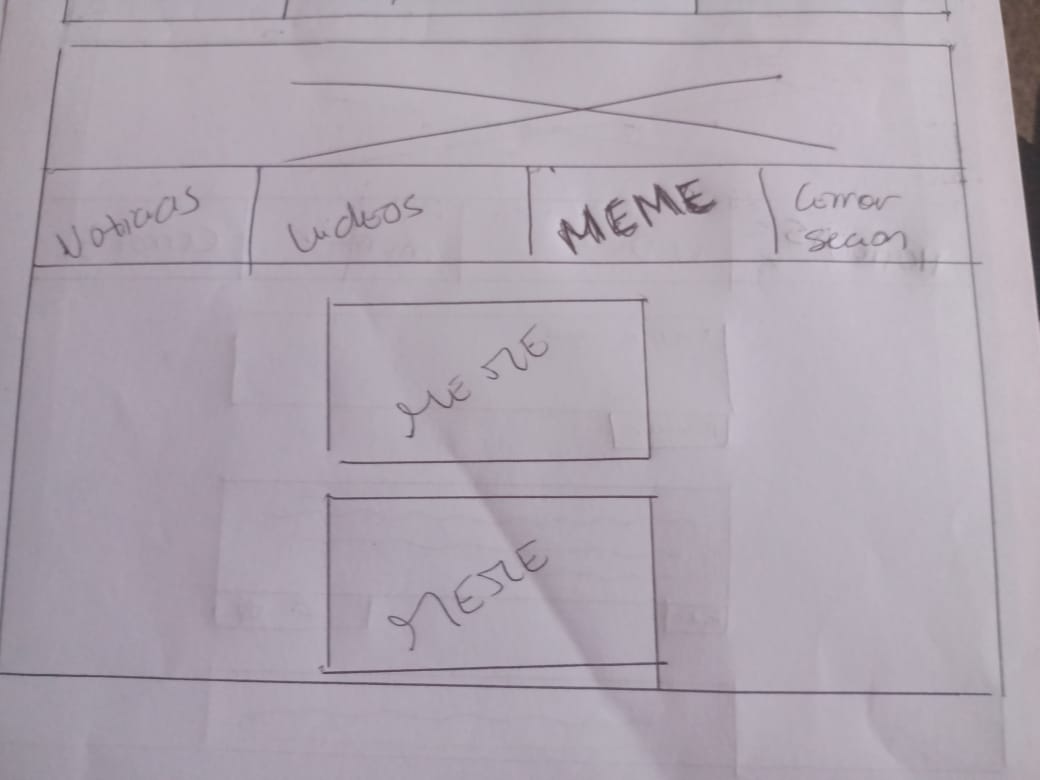 Noticias
Videos
MEME
Cerrar
Sesion
MEME
MEME